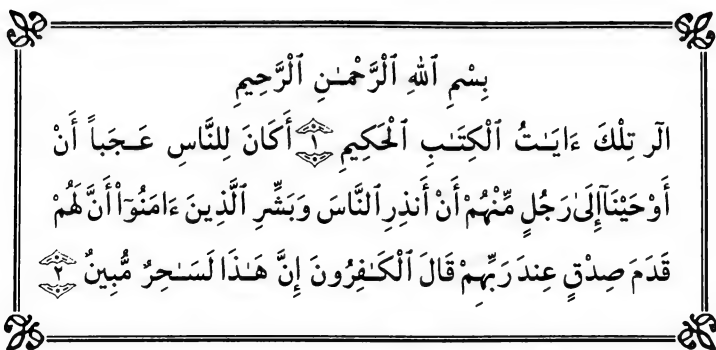 بِسْمِ ٱللهِ ٱلْرَّحْمَـٰنِ ٱلْرَّحِيمِ
الٓر تِلْكَ ءَايَـٰتُ ٱلْكِتَـٰبِ ٱلْحَكِيمِ ١ أَكَانَ لِلنَّاسِ عَـجَباً أَنْ
أَوْحَيْنَآ إِلَىٰ رَجُلٍ مِّنْهُمْ أَنْ أَنذِرِ ٱلنَّاسَ وَبَشِّرِ ٱلَّذِينَ ءَامَنُوٓاْ أَنَّ لَهُمْ
قَدَمَ صِدْقٍ عِندَ رَبِّهِمْ قَالَ ٱلْكَـٰفِرُونَ إِنَّ هَـٰذَا لَسَـٰحِرٌ مُّبِينٌ ٢